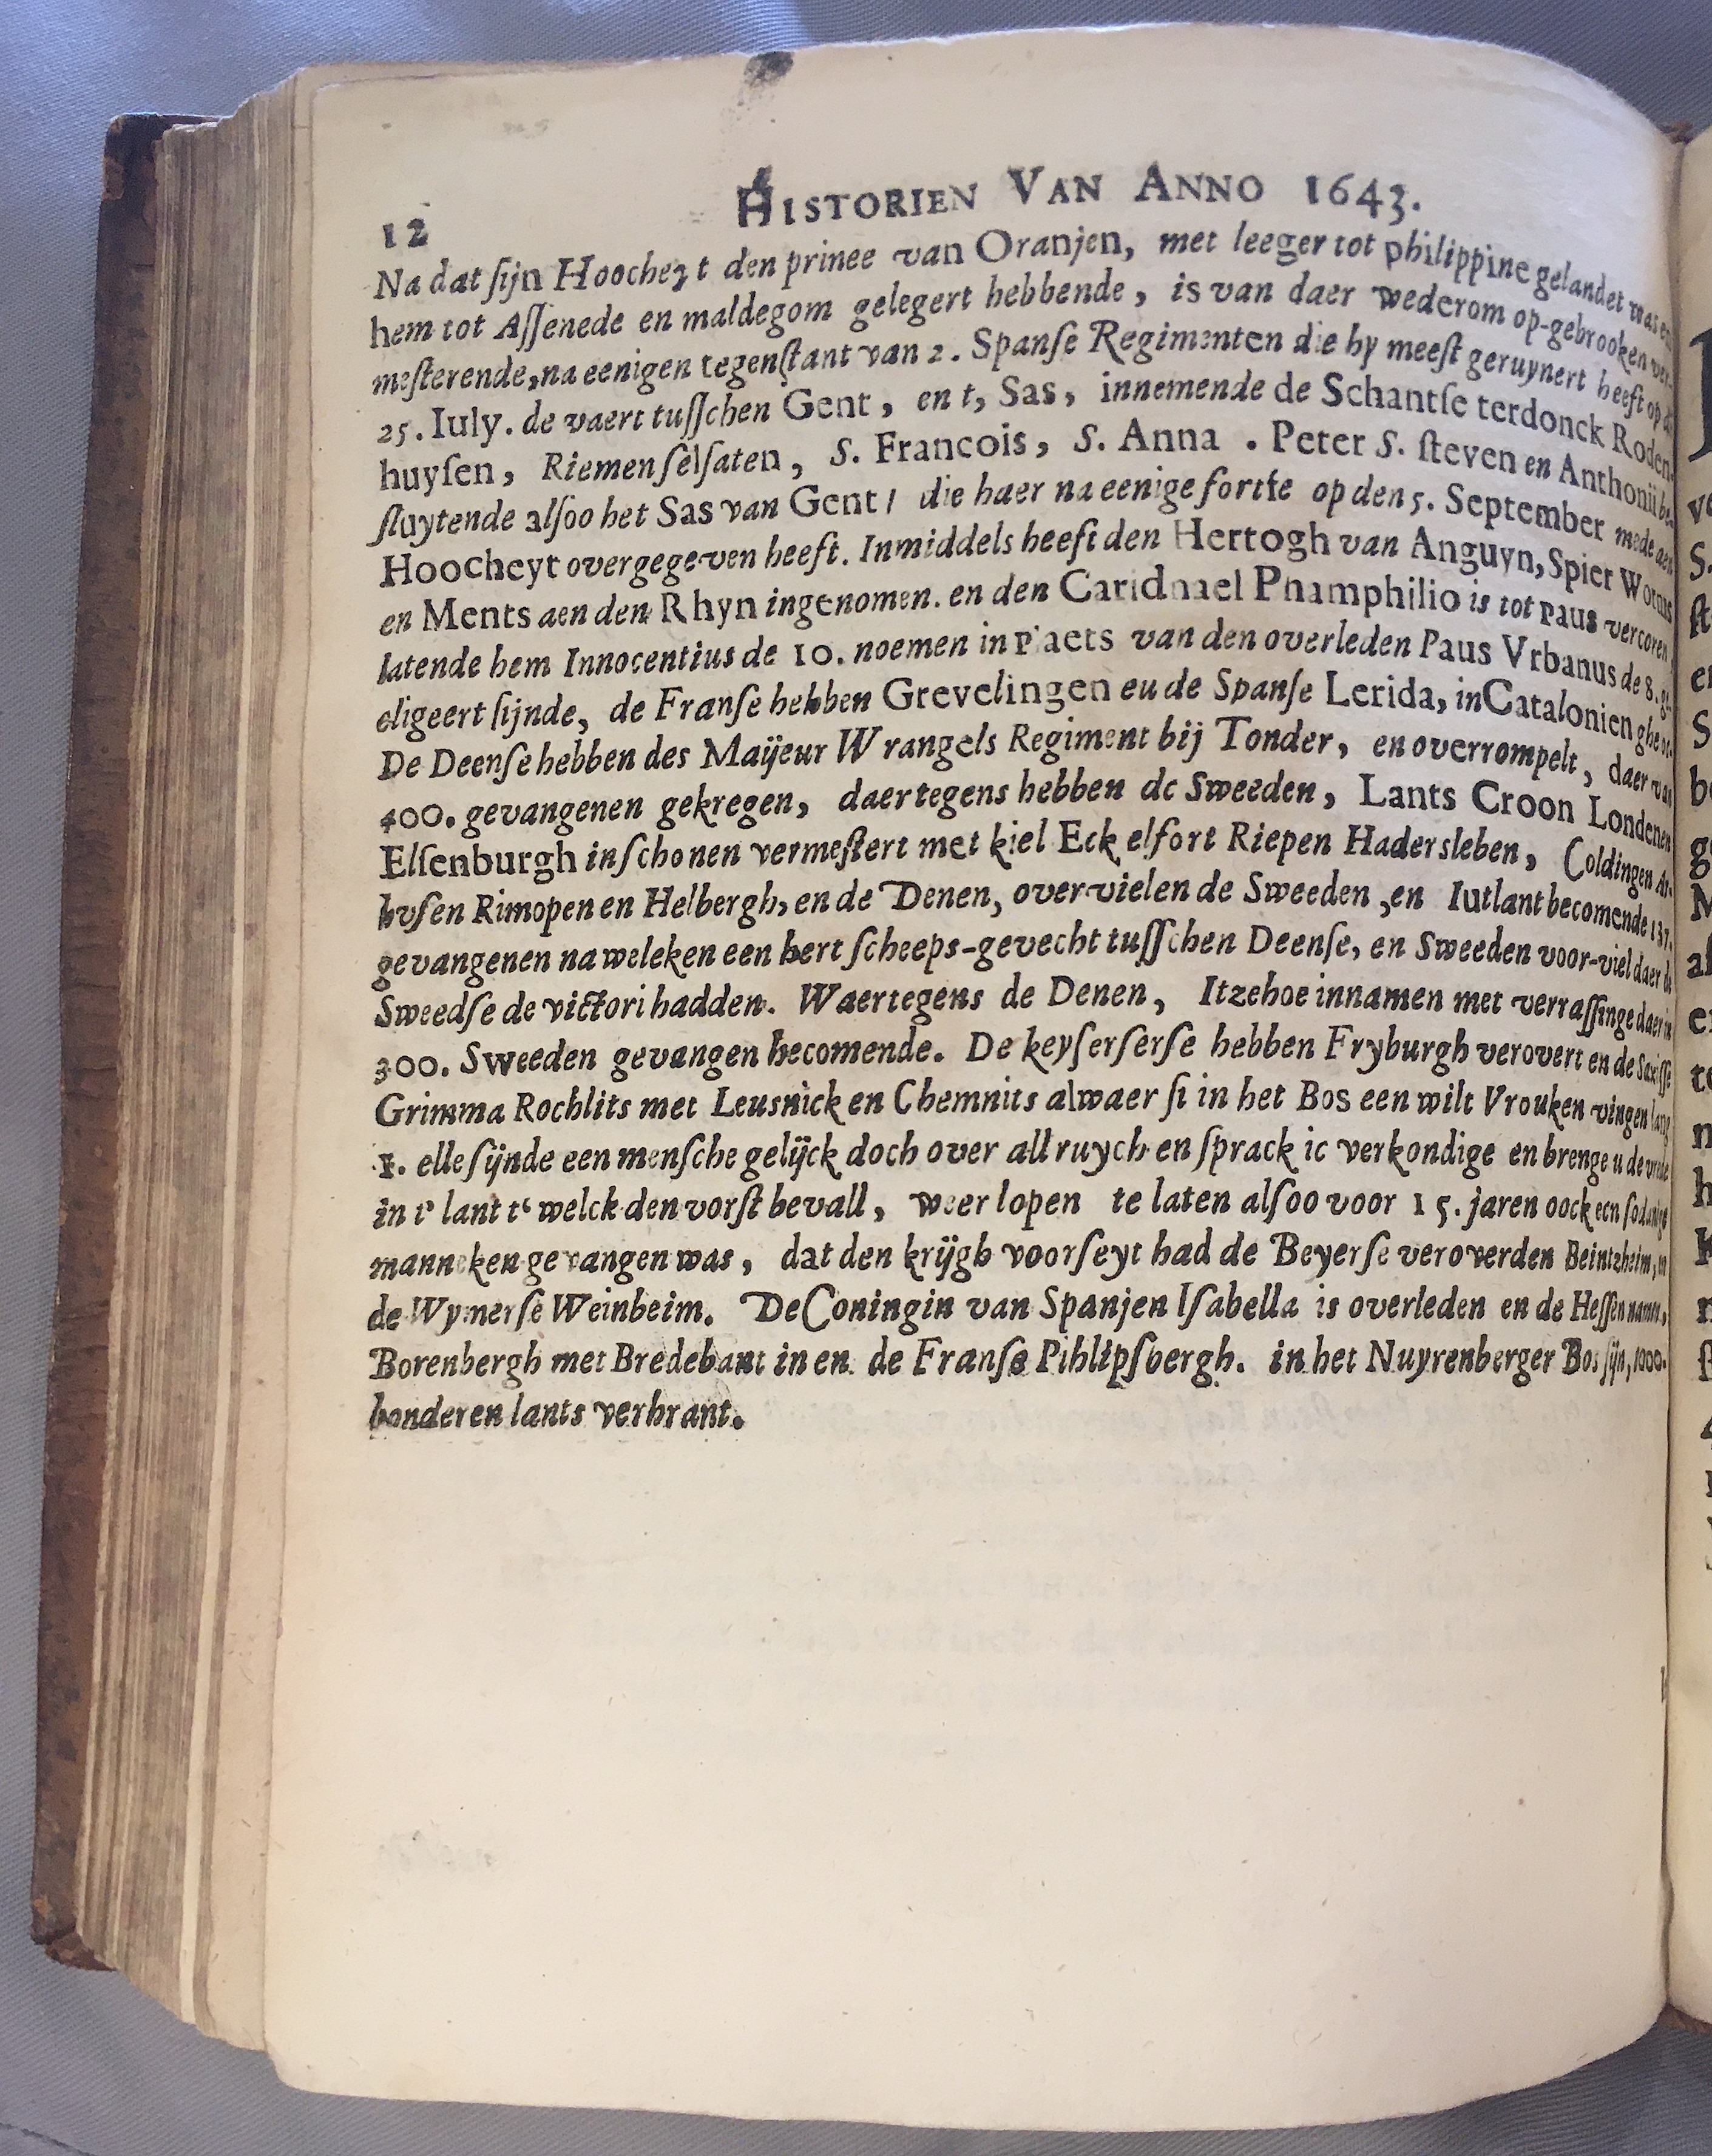 12
HISTORIEN VAN ANNO 1643.
Na dat ſijn Hoocheyt den prinee van Oranjen, met leeger tot philippine gelandet was en
hem tot Aſſenede en maldegom gelegert hebbende, is van daer wederom op-gebrooken ver-
meſterende, na eenigen tegenſtant van 2. Spanſe Regimenten die hy meeſt geruynert heeft op de
25. Iuly. de vaert tuſſchen Gent, en t, Sas, innemende de Schantſe terdonck Roden-
huyſen, Riemenſelſaten, S. Francois, S. Anna . Peter S. ſteven en Anthonij be-
ſluytende alſoo het Sas van Gent / die haer na eenige fortſe op den 5. September mede aen
Hoocheyt overgegeven heeft. Inmiddels heeft den Hertogh van Anguyn, Spier Worms
en Ments aen den Rhyn ingenomen. en den Caridnael Pnamphilio is tot Paus vercoren
latende hem Innocentius de 10. noemen in Plaets van den overleden Paus Vrbanus de 8. ge-
eligeert ſijnde, de Franſe hebben Grevelingen eu de Spanſe Lerida, in Catalonien
De Deenſe hebben des Maijeur Wrangels Regiment bij Tonder, en overrompelt, daer van
400. gevangenen gekregen, daertegens hebben de Sweeden, Lants Croon Londenen
Elſenburgh in ſchonen vermeſtert met kiel Eck elfort Riepen Hadersleben, Coldingen Ar-
huſen Rimopen en Helbergh, en de Denen, overvielen de Sweeden ,en Iutlant becomende 137.
gevangenen na weleken een hert ſcheeps-gevecht tuſſchen Deenſe, en Sweeden voor-viel daer de
Sweedſe de victori hadden. Waertegens de Denen, Itzehoe innamen met verraſſinge daer in
300. Sweeden gevangen becomende. De keyſerſerſe hebben Fryburgh verovert en de Saxiſſe
Grimma Rochlits met Leusnick en Chemnits alwaer ſi in het Bos een wilt Vrouken vingen lang
1. elle ſijnde een menſche gelijck doch over all ruych en ſprack ic verkondige en brenge u de vrede
in t' lant t' welck den vorſt bevall, weer lopen te laten alſoo voor 15. jaren oock een ſodanige
manneken gevangen was, dat den krijgh voorſeyt had de Beyerſe veroverden Beintzheim, en
de Wymerſe Weinheim. De Coningin van Spanjen Iſabella is overleden en de Heſſen namen,
Borenbergh met Bredebant in en de Franſe Pihlipſbergh. in het Nuyrenberger Bos ſijn, 1000.
bonderen lants verbrant.